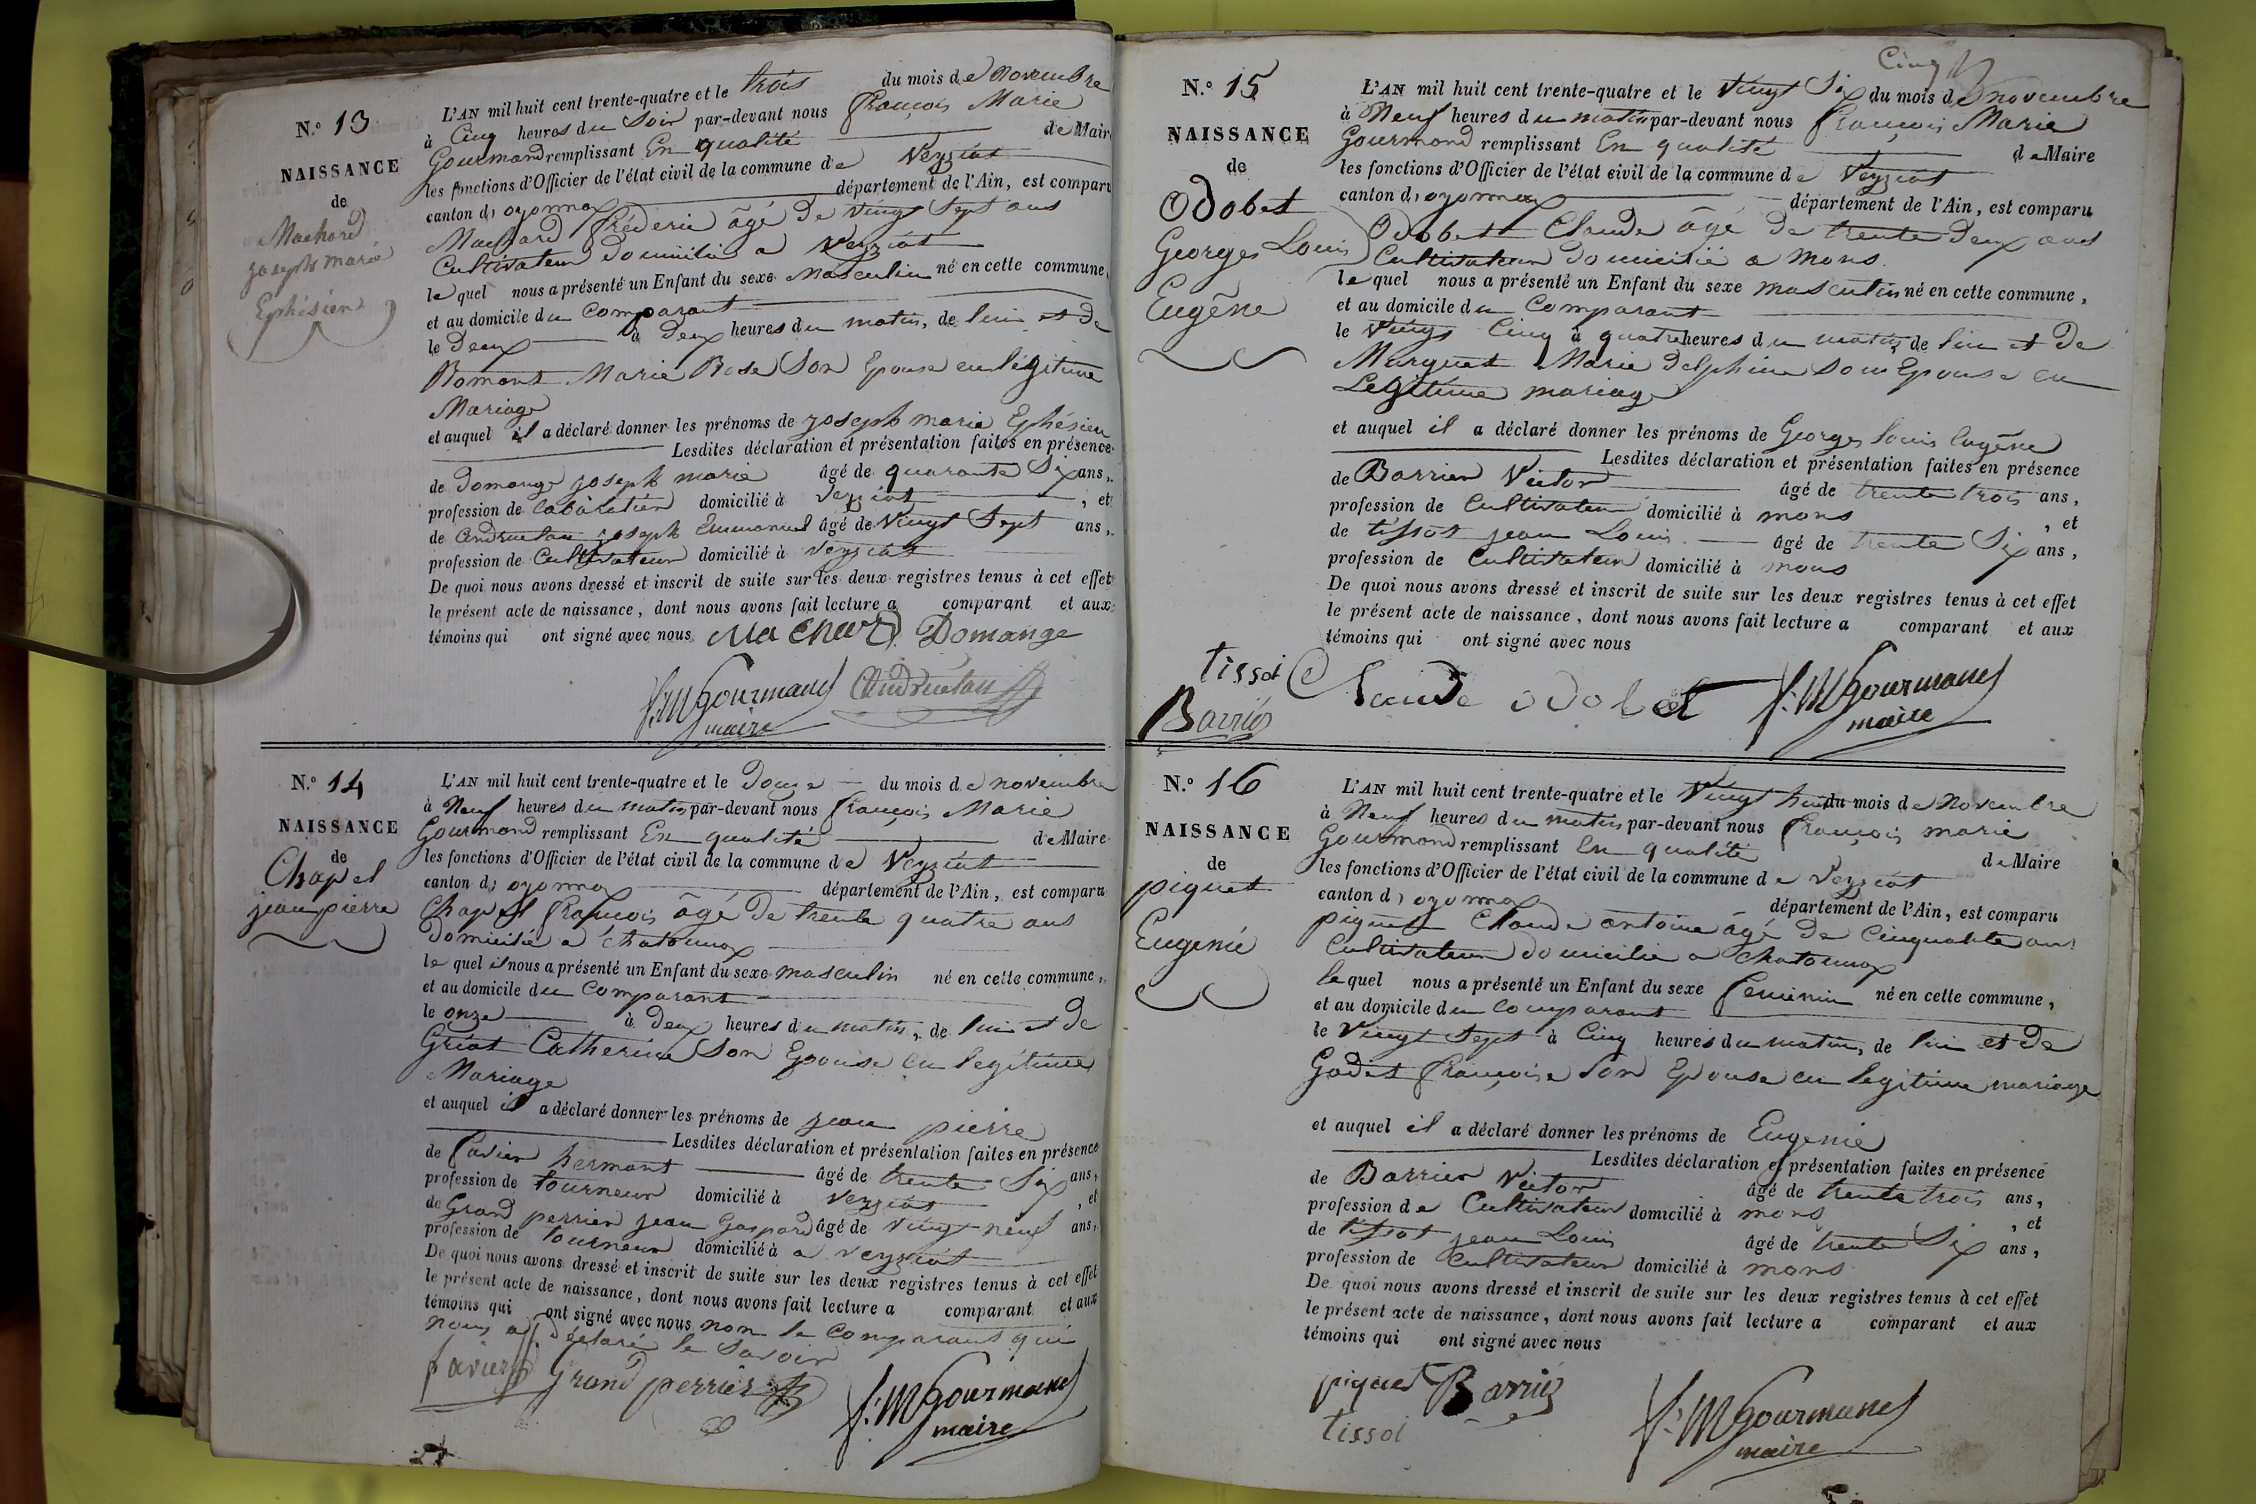 N.° 13
NAISSANCE
de
Machard
joseph marie
Ephésien
L'AN mil huit cent trente-quatre et le trois du mois de novembre
à Cinq heures du Soir par-devant nous françois Marie
Gourmand remplissant En qualité de Maire
les fonctions d'Officier de l'état civil de la commune de Veyziat
canton d'oyonnax département de l'Ain, est comparu
Machard fréderic âgé de vingt Sept ans
Cultivateur domicilié a Veyziat
lequel nous a présenté un Enfant du sexe Masculin né en cette commune,
et au domicile du Comparant
le Deux à Deux heures du matin, de lui et de
Romont Marie Rose Son Epouse en légitime
Mariage
et auquel il a déclaré donner les prénoms de joseph marie Ephésien
Lesdites déclaration et présentation faites en présence
de Domange joseph marie âgé de quarante Six ans,
profession de cabaretier domicilié à Veyziat, et
de andruetan joseph Emmanuel âgé de Vingt Sept ans,
profession de Cultivateur domicilié à Veyziat
De quoi nous avons dressé et inscrit de suite sur les deux registres tenus à cet effet
le présent acte de naissance, dont nous avons fait lecture a comparant et aux
témoins qui ont signé avec nous Machard Domange
f.M Gourmand Andruetan
maire
N.° 14
NAISSANCE
de
Chapel
jean pierre
L'AN mil huit cent trente-quatre et le Douze du mois de novembre
à Neuf heures du matin par-devant nous françois Marie
Gourmand remplissant En qualité de Maire
les fonctions d'Officier de l'état civil de la commune de Veyziat
canton d'oyonnax département de l'Ain, est comparu
Chapel françois âgé de trente quatre ans
domicilié a chatonnax
lequel il nous a présenté un Enfant du sexe masculin né en cette commune,
et au domicile du Comparant
le onze à deux heures du matin, de lui et de
Griot Catherine Son Epouse en legitime
Mariage
et auquel il a déclaré donner les prénoms de jean pierre
Lesdites déclaration et présentation faites en présence
de favier hermant âgé de trente Six ans,
profession de tourneur domicilié à Veyziat, et
de Grand perrier jean Gaspard âgé de vingt neuf ans,
profession de tourneur domicilié à a veyziat
De quoi nous avons dressé et inscrit de suite sur les deux registres tenus à cet effet
le présent acte de naissance, dont nous avons fait lecture a comparant et aux
témoins qui ont signé avec nous non le Comparant qui
nous a déclaré le savoir
favier grand perrier f.M Gourmand
maire
Cinq
N.° 15
NAISSANCE
de
Odobet
Georges Louis
Eugêne
L'AN mil huit cent trente-quatre et le Vingt Six du mois de novembre
à Neuf heures du matin par-devant nous françois Marie
Gourmand remplissant En qualité de Maire
les fonctions d'Officier de l'état civil de la commune de Veyziat
canton d'oyonnax département de l'Ain, est comparu
Odobet Claude âgé de trente deux ans
Cultivateur domicilié a mons
lequel nous a présenté un Enfant du sexe masculin né en cette commune,
et au domicile du Comparant
le Vingt Cinq à quatre heures du matin, de lui et de
Marguet Marie Delphine Son Epouse en
Legitime mariage
et auquel il a déclaré donner les prénoms de Georges louis Eugêne
Lesdites déclaration et présentation faites en présence
de Barrier Victor âgé de trente trois ans,
profession de Cultivateur domicilié à mons, et
de tissot jean Louis âgé de trente Six ans,
profession de Cultivateur domicilié à mons
De quoi nous avons dressé et inscrit de suite sur les deux registres tenus à cet effet
le présent acte de naissance, dont nous avons fait lecture a comparant et aux
témoins qui ont signé avec nous
tissot Claude odobet f.M Gourmand
Barrier maire
N.° 16
NAISSANCE
de
piquet
Eugenie
L'AN mil huit cent trente-quatre et le Vingt huit du mois de Novembre
à Neuf heures du matin par-devant nous françois marie
Gourmond remplissant En qualité de Maire
les fonctions d'Officier de l'état civil de la commune de Veyziat
canton d'oyonnax département de l'Ain, est comparu
piquet Claude antoine âgé de Cinquante ans
Cultivateur domicilié a Chatonnax
lequel nous a présenté un Enfant du sexe feminin né en cette commune,
et au domicile du Comparant
le Vingt Sept à Cinq heures du matin, de lui et de
Godet françoise Son Epouse en legitime mariage
et auquel il a déclaré donner les prénoms de Eugenie
Lesdites déclaration et présentation faites en présence
de Barrier Victor âgé de trente trois ans,
profession de Cultivateur domicilié à mons, et
de tissot jean Louis âgé de trente Six ans,
profession de Cultivateur domicilié à mons
De quoi nous avons dressé et inscrit de suite sur les deux registres tenus à cet effet
le présent acte de naissance, dont nous avons fait lecture a comparant et aux
témoins qui ont signé avec nous
piquet Barrier f.M Gourmand
tissot maire